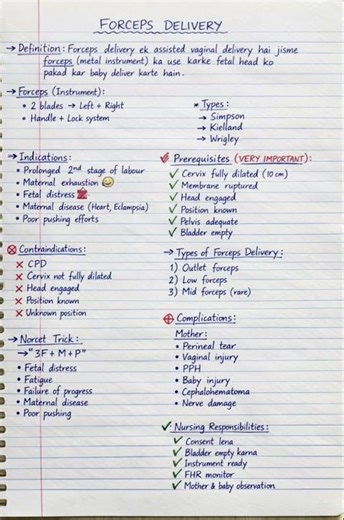 FORCEPS DELIVERY
→ Definition: Forceps delivery ek assisted vaginal delivery hai jisme
forceps (metal instrument) ka use karke fetal head ko
pakad kar baby deliver karte hain.
→ Forceps (Instrument):
• 2 blades → Left + Right
• Handle + Lock system
* Types:
→ Simpson
→ Kielland
→ Wrigley
→ Indications:
• Prolonged 2nd stage of labour
• Maternal exhaustion
• Fetal distress
• Maternal disease (Heart, Eclampsia)
• Poor pushing efforts
Prerequisites (VERY IMPORTANT):
✓ Cervix fully dilated (10 cm)
✓ Membrane ruptured
✓ Head engaged
✓ Position known
✓ Pelvis adequate
✓ Bladder empty
⊗ Contraindications:
✗ CPD
✗ Cervix not fully dilated
✗ Head engaged
✗ Position known
✗ Unknown position
→ Types of Forceps Delivery:
1) Outlet forceps
2) Low forceps
3) Mid forceps (rare)
→ Norcet Trick:
→ "3F + M + P"
• Fetal distress
• Fatigue
• Failure of progress
• Maternal disease
• Poor pushing
⊕ Complications:
Mother:
• Perineal tear
• Vaginal injury
• PPH
• Baby injury
• Cephalohematoma
• Nerve damage
✓ Nursing Responsibilities:
✓ Consent lena
✓ Bladder empty karna
✓ Instrument ready
✓ FHR monitor
✓ Mother & baby observation